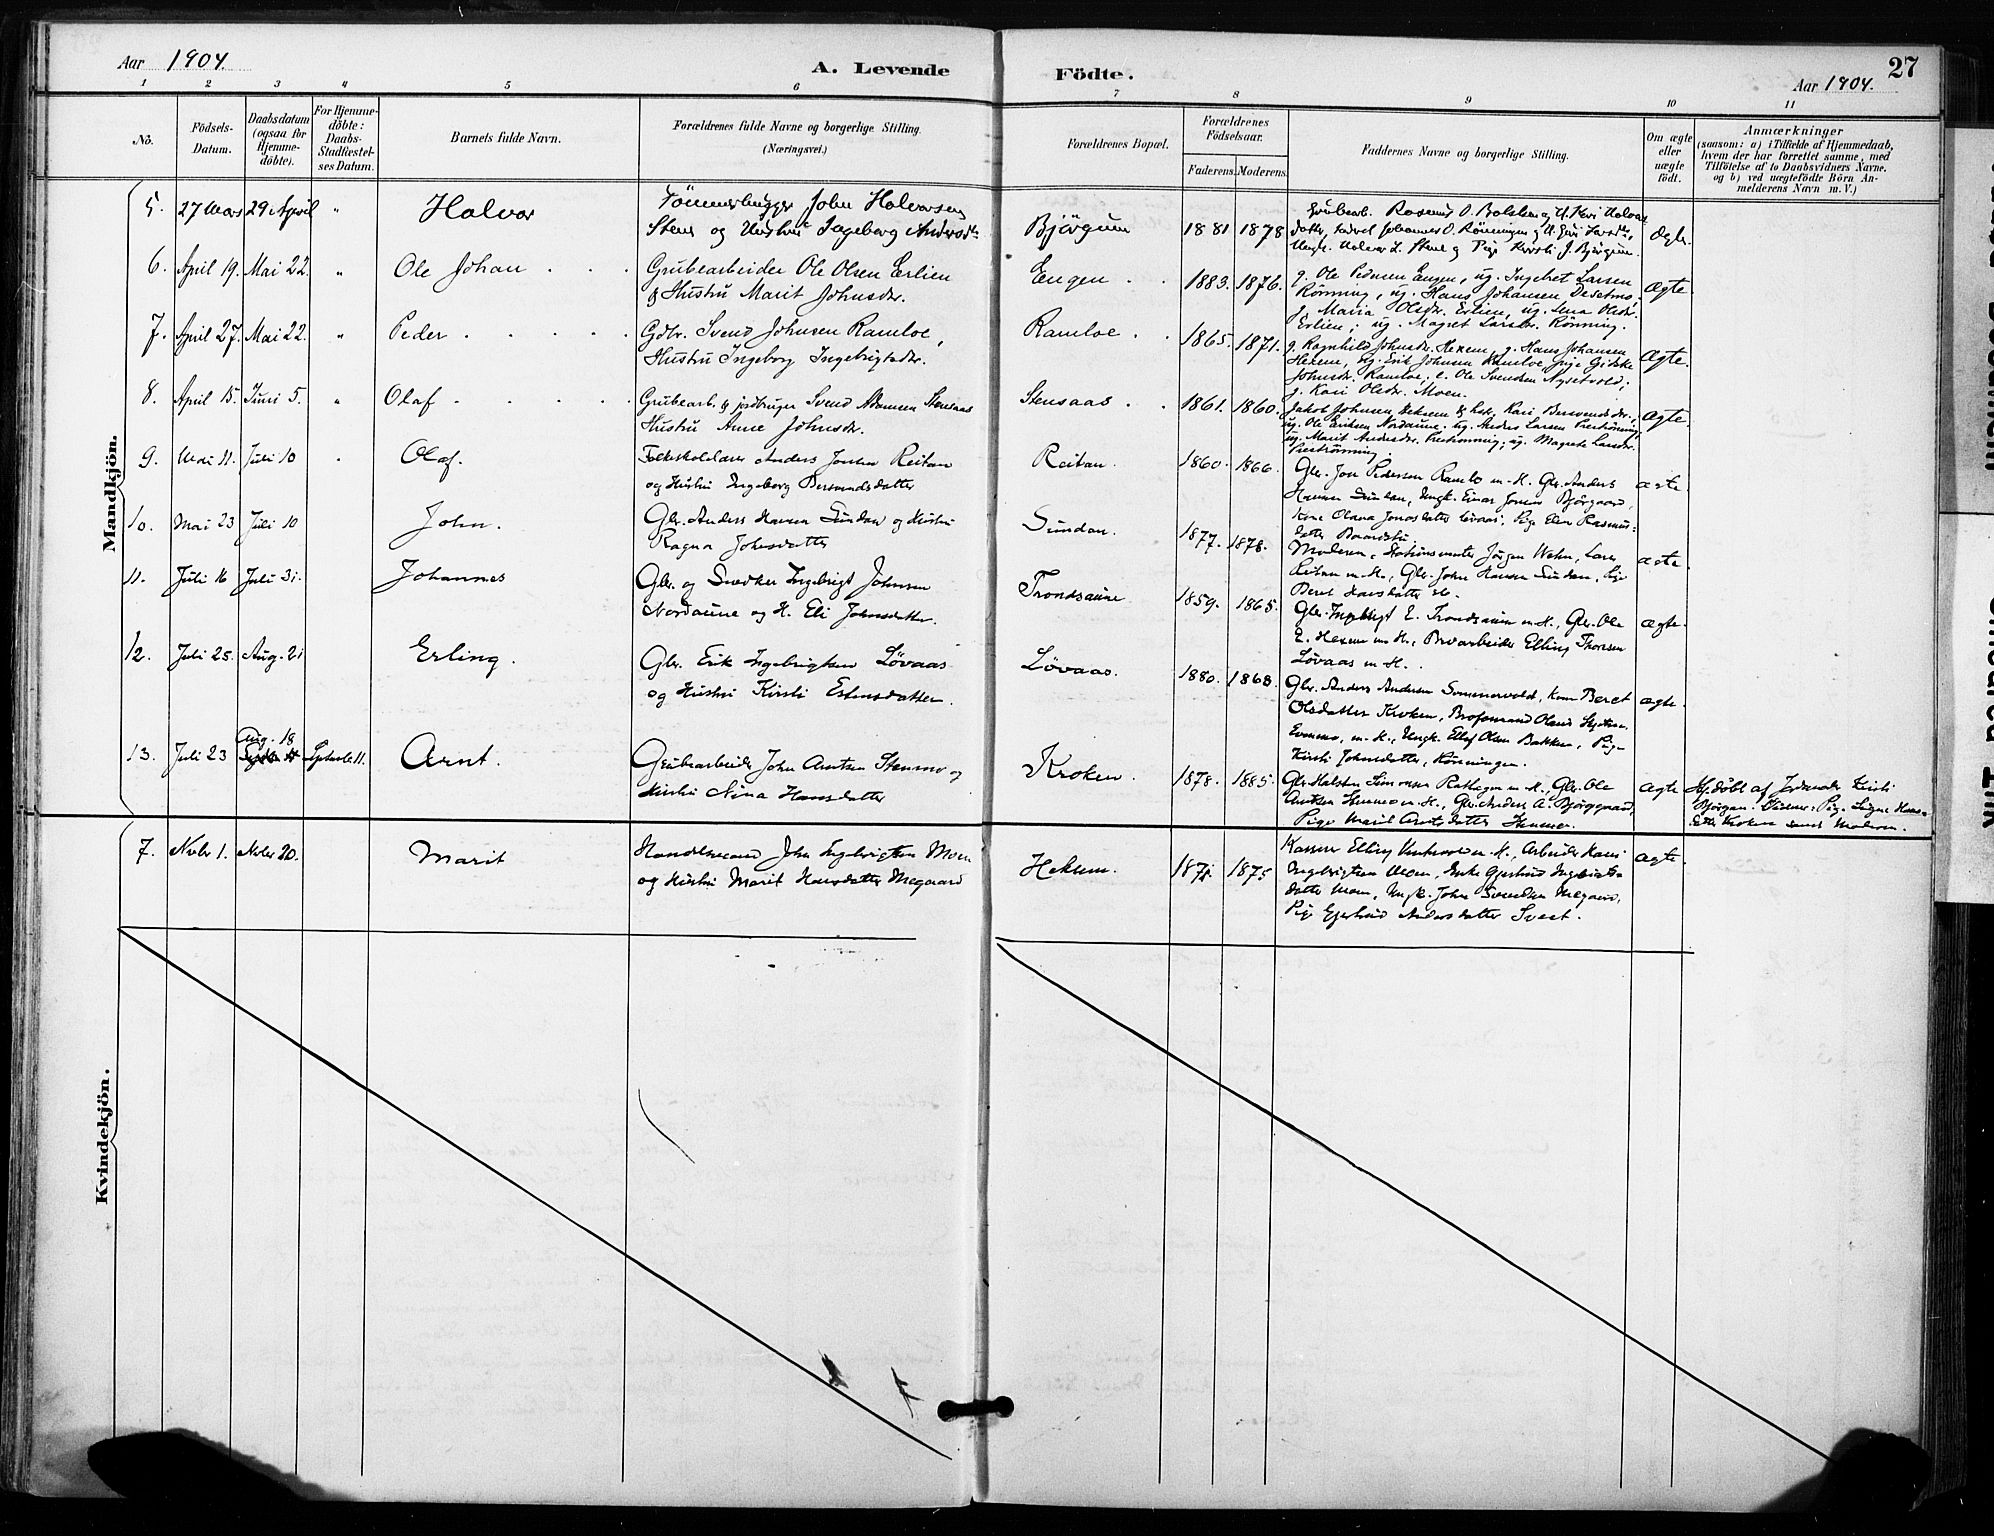 Aar 1904.
A. Levende Födte.
Aar 1904.
27
1 2 3 4 5 6 7 8 9 10 11
No.
Födsels-Datum.
Daabsdatum (ogsaa for Hjemme-döbte).
For Hjemme-döbte: Daabs-Stadfæstel-ses Datum.
Barnets fulde Navn.
Forældrenes fulde Navne og borgerlige Stilling.
(Næringsvei.)
Forældrenes Bopæl.
Forældrenes Födselsaar.
Faderens. Moderens.
Faddernes Navne og borgerlige Stilling.
Om ægte eller uægte födt.
Anmærkninger
(saasom: a) i Tilfælde af Hjemmedaab,
hvem der har forrettet samme, med
Tilföielse af to Daabsvidners Navne.
og b) ved uægtefödte Börn An-
melderens Navn m. V.)
Mandkjön.
5. 27 Mars 29 April " Halvor
Tömmerhugger John Halvorsen
Stene og Hustru Ingeborg Andersdtr
Björgum 1881 1878 Ægte.
6. April 19. Mai 22. " Ole Johan
Grubearbeider Ole Olsen Erlien
& Hustru Marit Johnsdr.
Engen 1883. 1876.
g. Ole Pedersen Engen, ug. Ingebret Larsen
Rönning, ug. Hans Johansen Desetmo,
j. Maria Olsdr. Erlien, ug. Lena Olsdr.
Erlien, ug. Magret Larsdr. Rönning.
ægte.
7. April 27. Mai 22. " Peder
Gdbr. Svend Johnsen Ramloe,
Hustru Ingeborg Ingebrigtsdr.
Ramloe 1865. 1871.
g. Ragnhild Johnsdr. Hexem, g. Hans Johansen
Hexem, ug. Erik Johnsen Ramloe, pige Gjidske
Johnsdr. Ramloe, e. Ole Svendsen Nysetvold,
g. Kari Olsdr. Moen.
ægte.
8. April 15. Juni 5. " Olaf
Grubearb. & jordbruger Svend Adamsen Stensaas
Hustru Anne Johnsdr.
Stensaas 1861. 1860.
Jakob Johnsen Heksem & hst. Kari Bersvendsdr.,
ug. Ole Eriksen Nordaune, ug. Anders Larsen Preströnning,
ug. Marit Andersdr. Preströnning, ug. Magrete Larsdr.
Preströnning.
ægte.
9. Mai 11. Juli 10 Olaf.
Folkeskolelærer Anders Jonsen Reitan
og Hustru Ingeborg Bersvendsdatter
Reitan. 1860. 1866.
Gbr. Jon Pedersen Ramlo m. H. Gbr. Anders
Hansen Sundan, Ungk. Einar Jonsen Björgaard,
Kone Olava Jonasdatter Lövaas, Pige Elen Rasmus-
datter
ægte.
10. Mai 23 Juli 10 John.
Gbr. Anders Hansen Sundan og Hustru
Ragna Johnsdatter
Sundan. 1877. 1878.
Moderen, Stationsmester Jörgen Wehn, Lærer
Reitan m. H., Gbr. John Hansen Sundan, Pige
Beret Hansdatter
ægte
11. Juli 16 Juli 31. Johannes
Gbr. og Snedker Ingebrigt Johnsen
Nordaune og H. Eli Johnsdatter.
Trondsaune 1859. 1865.
Gbr. Ingebrigt E. Trondsaune m. H., Gbr. Ole
E. Hexem m. H., Arbeider Elling Thoresen
Lövaas m. H.
ægte.
12. Juli 25. Aug. 21 Erling.
Gbr. Erik Ingebrigtsen Lövaas
og Hustru Kirsti Estensdatter.
Lövaas. 1880. 1868.
Gbr. Anders Andersen Sommervold, Kone Beret
Olsdatter Kroken,
Evenmo, m. H., Ungk. Ellef Olsen Bakken, Pige
Kirsti Johnsdatter, Rönningen.
ægte.
13. Juli 23 Aug. 18 Septbr 11. Arnt.
Grubearbeider John Arntsen Stenmo og
Hustru Nina Hansdatter
Kroken. 1878. 1885.
Gbr. Halsten Simonsen Rathagen m. H., Gbr. Ole
Arntsen Stenmo m. H., Gbr. Anders A. Björgaard,
Pige Marit Arntsdatter Stenmo.
ægte
Hj. döbt af Jordmoder Kirsti
Björgan. Vidner: Pige Signe Hans-
datter Kroken samt Moderen.
Kvindekjön.
7. Novbr 1. Novbr 20. Marit
Handelsmand John Ingebrigtsen Moen
og Hustru Marit Hansdatter Megaard
Heksem. 1871. 1875
Kasserer Elling m. H., Arbeider Hans
Ingebrigtsen Moen, Enke Gjertrud Ingebrigts-
datter Moen, Ungk. John Svendsen Megaard,
Pige Gjertrud Andersdatter Svest.
ægte.